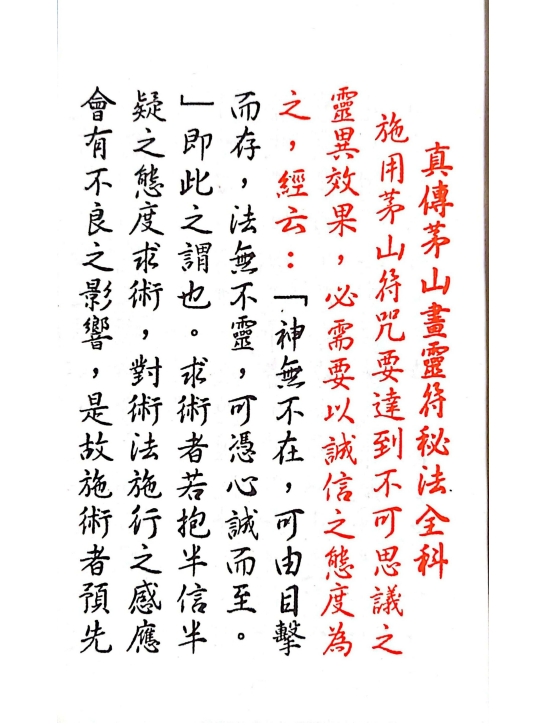 真傳茅山畫靈符秘法全科
施用茅山符咒要達到不可思議之
靈異效果，必需要以誠信之態度為
之，經云：「神無不在，可由目擊
而存，法無不靈，可憑心誠而至。
」即此之謂也。求術者若抱半信半
疑之態度求術，對術法施行之感應
會有不良之影響，是故施術者預先